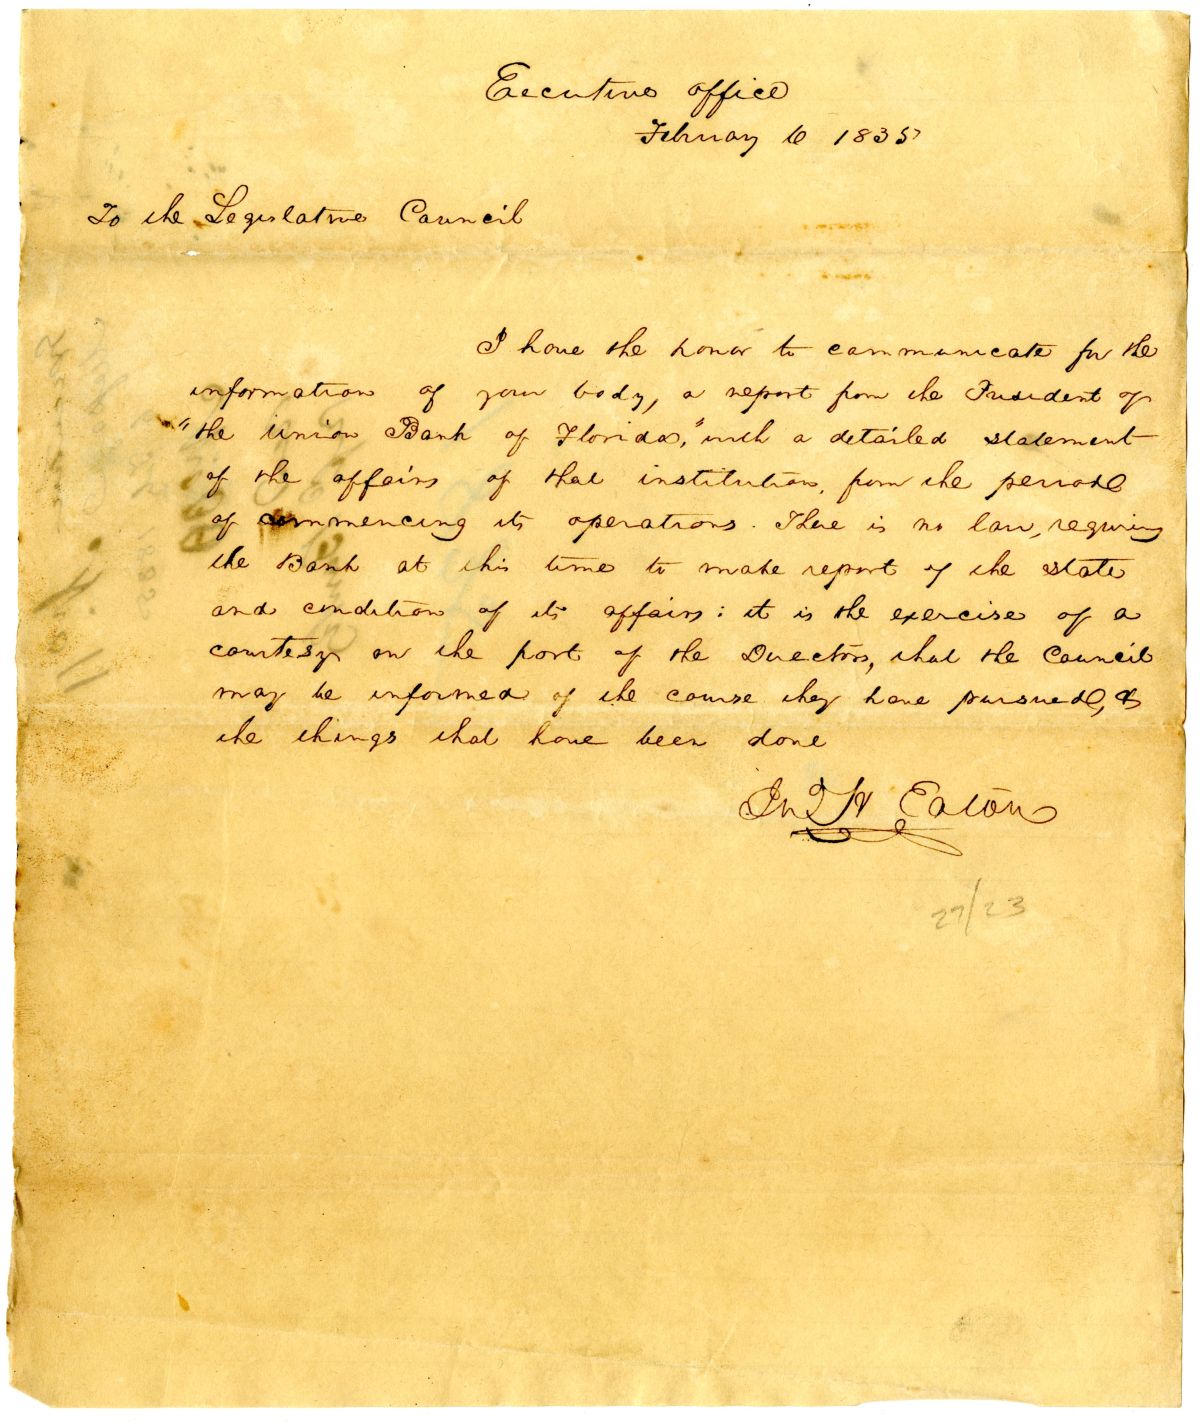 Executive office
February 6 1835
To the Legislative Council
I have the honor to communicate for the
information of your body, a report from the President of
"the Union Bank of Florida," with a detailed statement
of the affairs of that institution, from the period
of commencing its operations. There is no law, requiring
the Bank at this time to make report of the state
and condition of its affairs: it is the exercise of a
courtesy on the part of the Directors, that the Council
may be informed of the course they have pursued, &
the things that have been done
Jno H Eaton
27/23